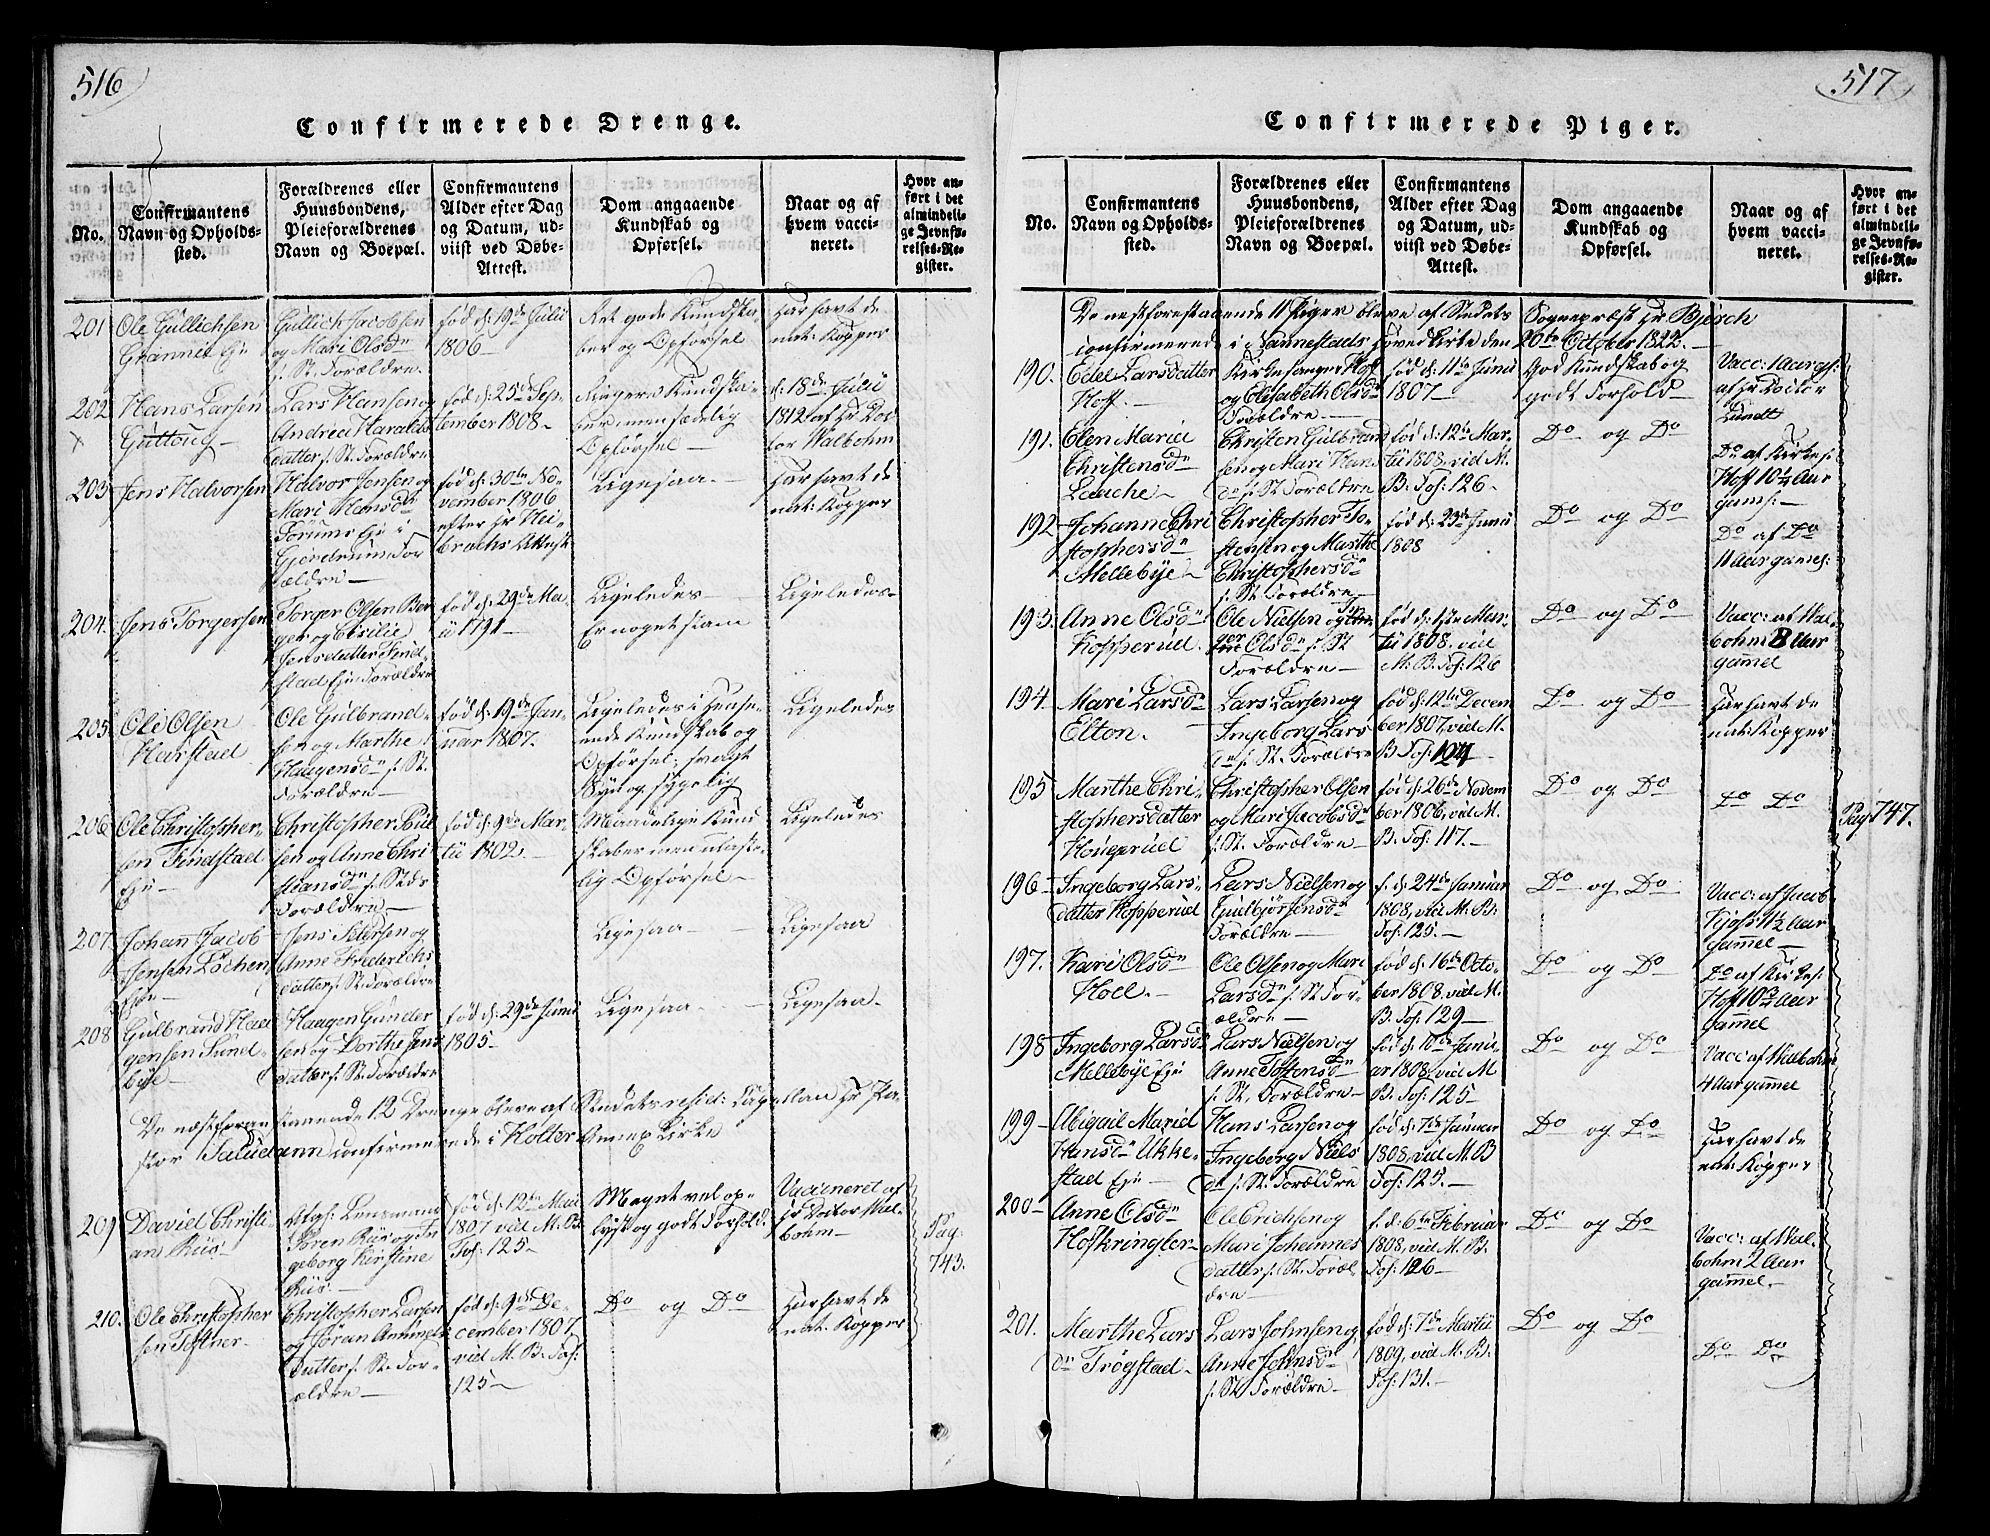 516
Confirmerede Drenge.
No.
Confirmantens
Navn og Opholds-
sted.
Forældrenes eller
Huusbondens,
Pleieforældrenes
Navn og Boepæl.
Confirmantens
Alder efter Dag
og Datum, ud-
viist ved Døbe-
Attest.
Dom angaaende
Kundskab og
Opførsel.
Naar og af
hvem vacci-
neret.
Hvor an-
ført i det
almindeli-
ge Jevnfø-
relses-Re-
gister.
201
Ole Gullichsen
Grønnie Eje
Gullich Jacobsen
og Mari Olsdn
f. St. Forældre.
fød d: 19de Julii
1806
Ret gode Kundska-
ber og Opførsel
Har havt de
nat: Kopper
202
Hans Larsen
Guttoug
Lars Hansen og
Andrea Haralds
datter f. St. Forældre
fød d: 25de Sep-
tember 1808
Ringere Kundska-
ber men sædelig
Opførsel
d: 18de Julii
1812 af Hr Doc-
tor Walbohm
203
Jens Halvorsen
Halvor Jensen og
Mari Hansdn
Eje i
Gjerdrum For
ældre
fød d: 30te No-
vember 1806
efter Hr Nei-
brochs Attest
Ligesaa
Har havt de
nat: Kopper
204.
Jens Torgersen
Torger Olsen Ber
ger og Cicilie
Jensdatter Find-
stad Eje Forældre
fød d: 29de Ma-
ii 1791
Ligeledes
Er noget siam
Ligeledes
205.
Ole Olsen
Harstad
Ole Gulbrand-
sen og Marthe
Haagensdn f. St.
Forældre
fød d: 19de Jan-
uar 1807.
Ligeledes i Hense-
ende Kundskab og
Opførsel; svagt
Syn og sygelig
Ligeledes
206
Ole Christopher-
sen Findstad
Eje
Christopher Poul
sen og Anne Chri-
stiansdn f. Steds
Forældre
fød d: 9de Mar-
tii 1802.
Maadelige Kund
skaber men ulaste-
lig Opførsel
Ligeledes
207.
Johan Jacob
Jensen Løchen
Eje
Jens Petersen og
Anne Frederichs
datter f. St. Forældre
Ligesaa
Ligesaa
208
Gulbrand Haa
gensen Sund-
bye
Haagen Gunder
sen og Dorthe Jens
datter f. St. Forældre
fød d: 29de Junii
1805
Ligesaa
Ligesaa
De næstforan staaende 12 Drenge bleve af Stedets resid: Capellan Hr Pa-
stor Saludmann confirmerede i Holter Annex Kirke
209
David Christi-
an Riis
Afgl: Lensmand
Søren Riis og In
geborg Kirstine
Riis
fød d: 12te Maii
1807 vid M.B.
Fol: 125
Meget vel op-
lyst og godt Forhold
Vaccineret af
Hr Doctor Wal-
bohm
Pag:
743.
210.
Ole Christopher
sen Toftner
Christopher Larsen
og Jøran Amunds
datter f. St. For-
ældre
fød d: 9de De-
cember 1807
vid M. B. Fol:
125
Do og Do
Har havt de
nat: Kopper
517
Confirmerede Piger.
No.
Confirmantens
Navn og Opholds-
sted.
Forældrenes eller
Huusbondens,
Pleieforældrenes
Navn og Boepæl.
Confirmantens
Alder efter Dag
og Datum, ud-
viist ved Døbe-
Attest.
Dom angaaende
Kundskab og
Opførsel.
Naar og af
hvem vacci-
neret.
Hvor an-
ført i det
almindeli-
ge Jevnfø-
relses-Re-
gister.
De næstforestaaende 11 Piger bleve af Stedets Sognepræst Hr Bjerch
confirmerede i Nannestads Hoved Kirke den 20de October 1822.
190.
Edel Larsdatter
Hoff.
Kirkesanger Hoff
og Elisabeth Olsdn
Forældre
fød d: 11te Junii
1807
God Kundskab og
godt Forhold
Vacc: 1 Aar gl:
af Hr Doctor
Lundt
191.
Elen Maria
Christensdn
Lauche
Christen Gulbrand
sen og Mari Hans
dn f. St. Forældre
fød d: 12te Mar-
tii 1808, vid M.
B. Fol: 126
Do og Do
Do af Kirkes:
Hoff 10½ Aar
gaml:
192
Johanne Chri
stophersdn
Mellebye
Christopher To-
stensen og Marthe
Christophersdn
f. St. Forældre
fød d: 23de Junii
1808
Do og Do
Do af Do
11 Aar gamel:
193.
Anne Olsdn
Kopperud
Ole Nielsen og In
ger Olsdn f. St
Forældre
fød d: 1ste Mar-
tii 1808. vid
M. B. Fol: 126
Do og Do
Vacc: af Wal-
bohm 8 Aar
gammel
194
Mari Larsdn
Elton.
Lars Larsen og
Ingeborg Lars
dn f. St. Forældre
fød d: 12te Decem
ber 1807, vid M.
B Fol: 124
Do og Do
Har havt de
nat: Kopper
195
Marthe Chri-
stophersdatter
Houeprud
Christopher Olsen
og Mari Jacobsdn
f. St. Forældre
fød d: 26de Novem
ber 1806, vid M.
B. Fol: 117.
Do og Do
Do Do
Pag 747.
196
Ingeborg Lars-
datter Kopperud
Lars Nielsen og
Gulbjørsensdn
Forældre
f. d: 24de Januar
1808, vid M. B:
Fol: 125.
Do og Do
Vacc: af Jacob
Kjos 11½ Aar
gammel
197.
Kari Olsdn
Holl.
Ole Olsen og Mari
Larsdn f. St. For-
ældre
fød d: 16de Octo-
ber 1808, vid M.
B. Fol: 129
Do og Do
Do af Kirkes:
Hoff 10¾ Aar
gammel
198
Ingeborg Larsdn
Mellebye Eje
Lars Nielsen og
Anne Tostensdn
f. St. Forældre
fød d: 10de Janu-
ar 1808, vid M
B. Fol: 125
Do og Do
Vacc af Walbohm
4 Aar gammel
199
Abigael Marie
Hansdn Ukke-
stad Eje
Hans Larsen og
Ingeborg Niels
dn f. St. Forældre
fød d: 7de Januar
1808, vid M. B
Fol: 125.
Do og Do
Har havt de
nat: Kopper
200
Anne Olsdn
Hofkringler
Ole Erichsen og
Mari Johannes
datter f. St. Foræl
dre
f. d: 6te Februar
1808, vid M. B.
Fol: 126
Do og Do
Vacc: af Wal-
bohm 2 Aar
gammel.
201.
Marthe Lars
dn Trøgstad
Lars Johnsen og
Anne Johnsdn
f. St. Forældre
fød d: 7de Martii
1809, vid M. B:
Fol: 131.
Do og Do
Do Do